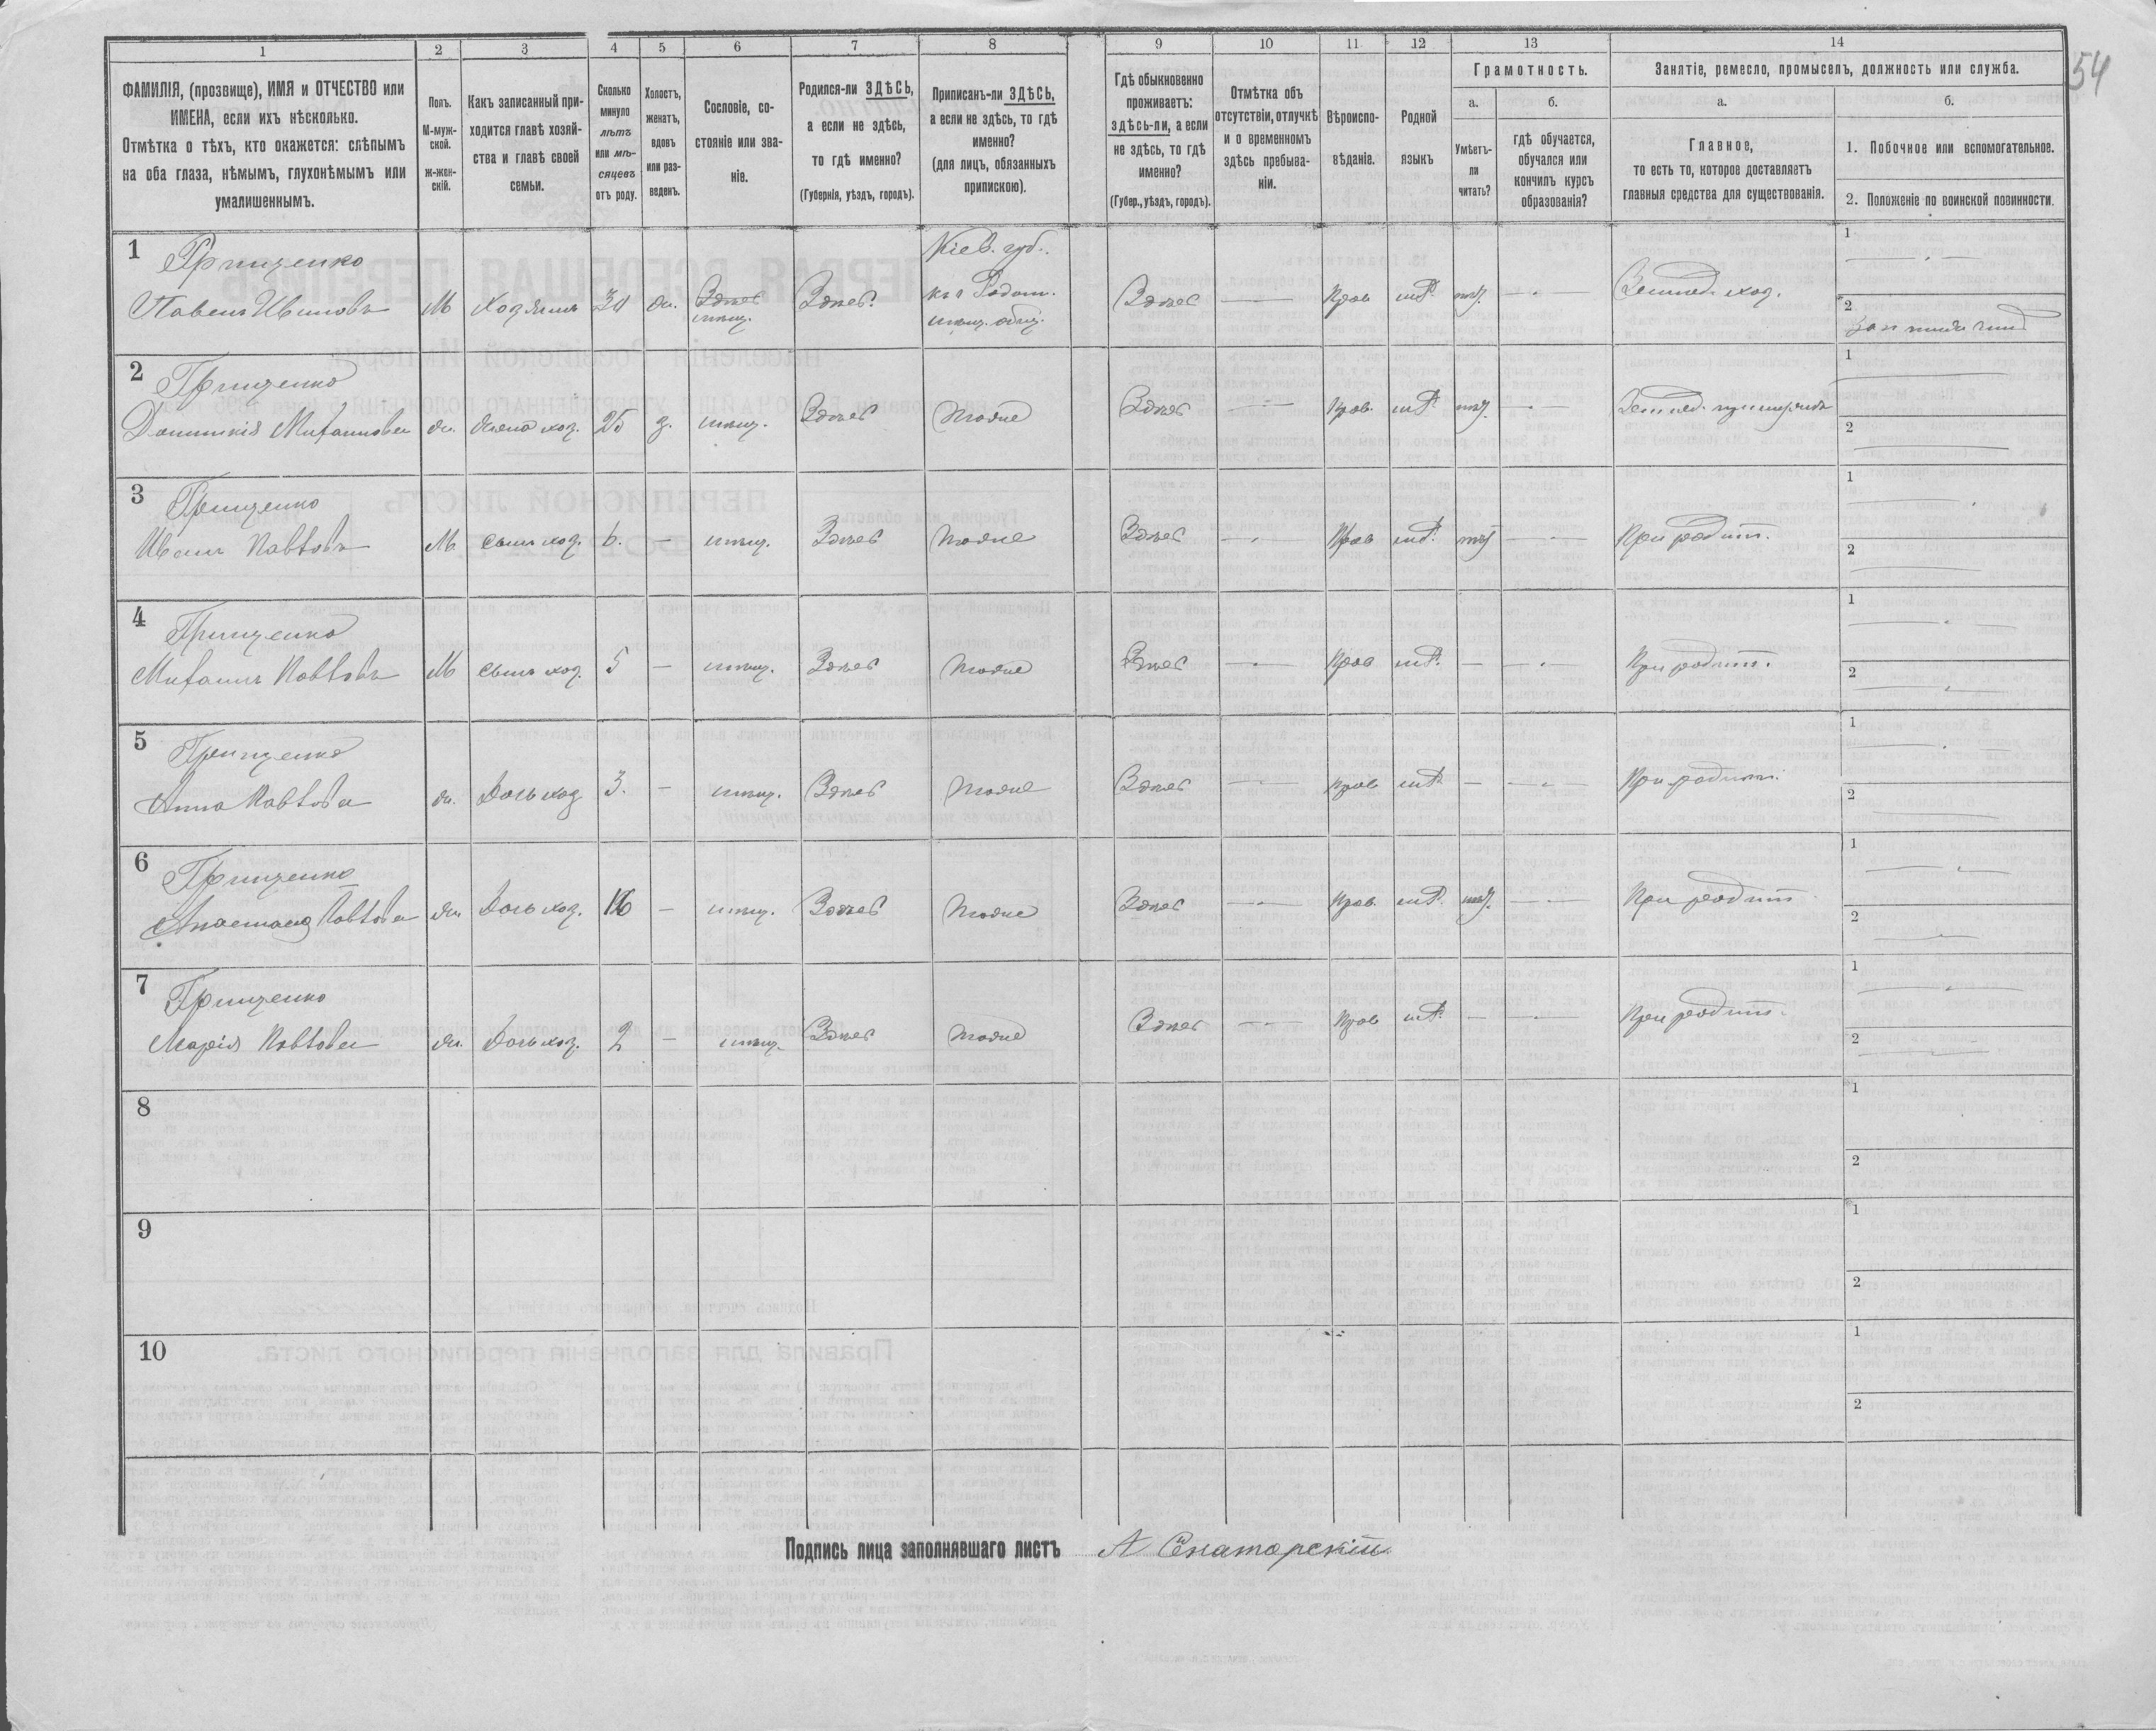 54
1 2 3 4 5 6 7 8 9 10 11 12 13 14
ФАМИЛІЯ, (прозвище), ИМЯ и ОТЧЕСТВО или
ИМЕНА, если ихъ нѣсколько.
Отмѣтка о тѣхъ, кто окажется: слѣпымъ
на оба глаза, нѣмымъ, глухонѣмымъ или
умалишеннымъ.
Полъ.
М-муж-
ской.
ж-жен-
скій.
Какъ записанный при-
ходится главѣ хозяй-
ства и главѣ своей
семьи.
Сколько
минуло
лѣтъ
или мѣ-
сяцевъ
отъ роду.
Холостъ,
женатъ,
вдовъ
или раз-
веденъ.
Сословіе, со-
стояніе или зва-
ніе.
Родился-ли ЗДѢСЬ,
а если не здѣсь,
то гдѣ именно?
(Губернія, уѣздъ, городъ).
Приписанъ-ли ЗДѢСЬ,
а если не здѣсь, то гдѣ
именно?
(для лицъ, обязанныхъ
припискою).
Гдѣ обыкновенно
проживаетъ:
здѣсь-ли, а если
не здѣсь, то гдѣ
именно?
(Губер., уѣздъ, городъ).
Отмѣтка объ
отсутствіи, отлучкѣ
и о временномъ
здѣсь пребыва-
ніи.
Вѣроиспо-
вѣданіе.
Родной
языкъ
Грамотность.
а.
Умѣетъ-
ли
читать?
б.
гдѣ обучается,
обучался или
кончилъ курсъ
образованія?
Занятіе, ремесло, промыселъ, должность или служба.
а.
Главное,
то есть то, которое доставляетъ
главныя средства для существованія.
б.
1. Побочное или вспомогательное.
2. Положеніе по воинской повинности.
1 Грищенко Кіев. губ. 1
Павелъ Ивановъ М Хозяинъ ж. Здѣсь Здѣсь Здѣсь — Прав. Землед. хоз. 2
мѣщ. мѣщ. общ.
2 Грищенко 1
Михаиловна ж. жена хоз. 25 з. мѣщ. Здѣсь Тоже Здѣсь — Прав. Землед. 2
3 Грищенко 1
Иванъ Павловъ М сынъ хоз. 6. — мѣщ. Здѣсь Тоже Здѣсь — Прав — При родит. 2
4 Грищенко 1
Михаилъ Павловъ М сынъ хоз. 5 — мѣщ. Здѣсь Тоже Здѣсь — Прав — — При родит. 2
5 Грищенко 1
Анна Павлова ж. Дочь хоз 3. — мѣщ. Здѣсь Тоже Здѣсь — Прав — — При родит. 2
6 Грищенко 1
Анастасія Павлова ж. Дочь хоз. — мѣщ. Здѣсь Тоже Здѣсь — Прав. — При родит 2
7 Грищенко 1
Марія Павлова ж. Дочь хоз. 2 — мѣщ. Здѣсь Тоже Здѣсь — Прав — — При родит. 2
8 1
2
9 1
2
10 1
2
Подпись лица заполнявшаго листъ А Сенаторскій